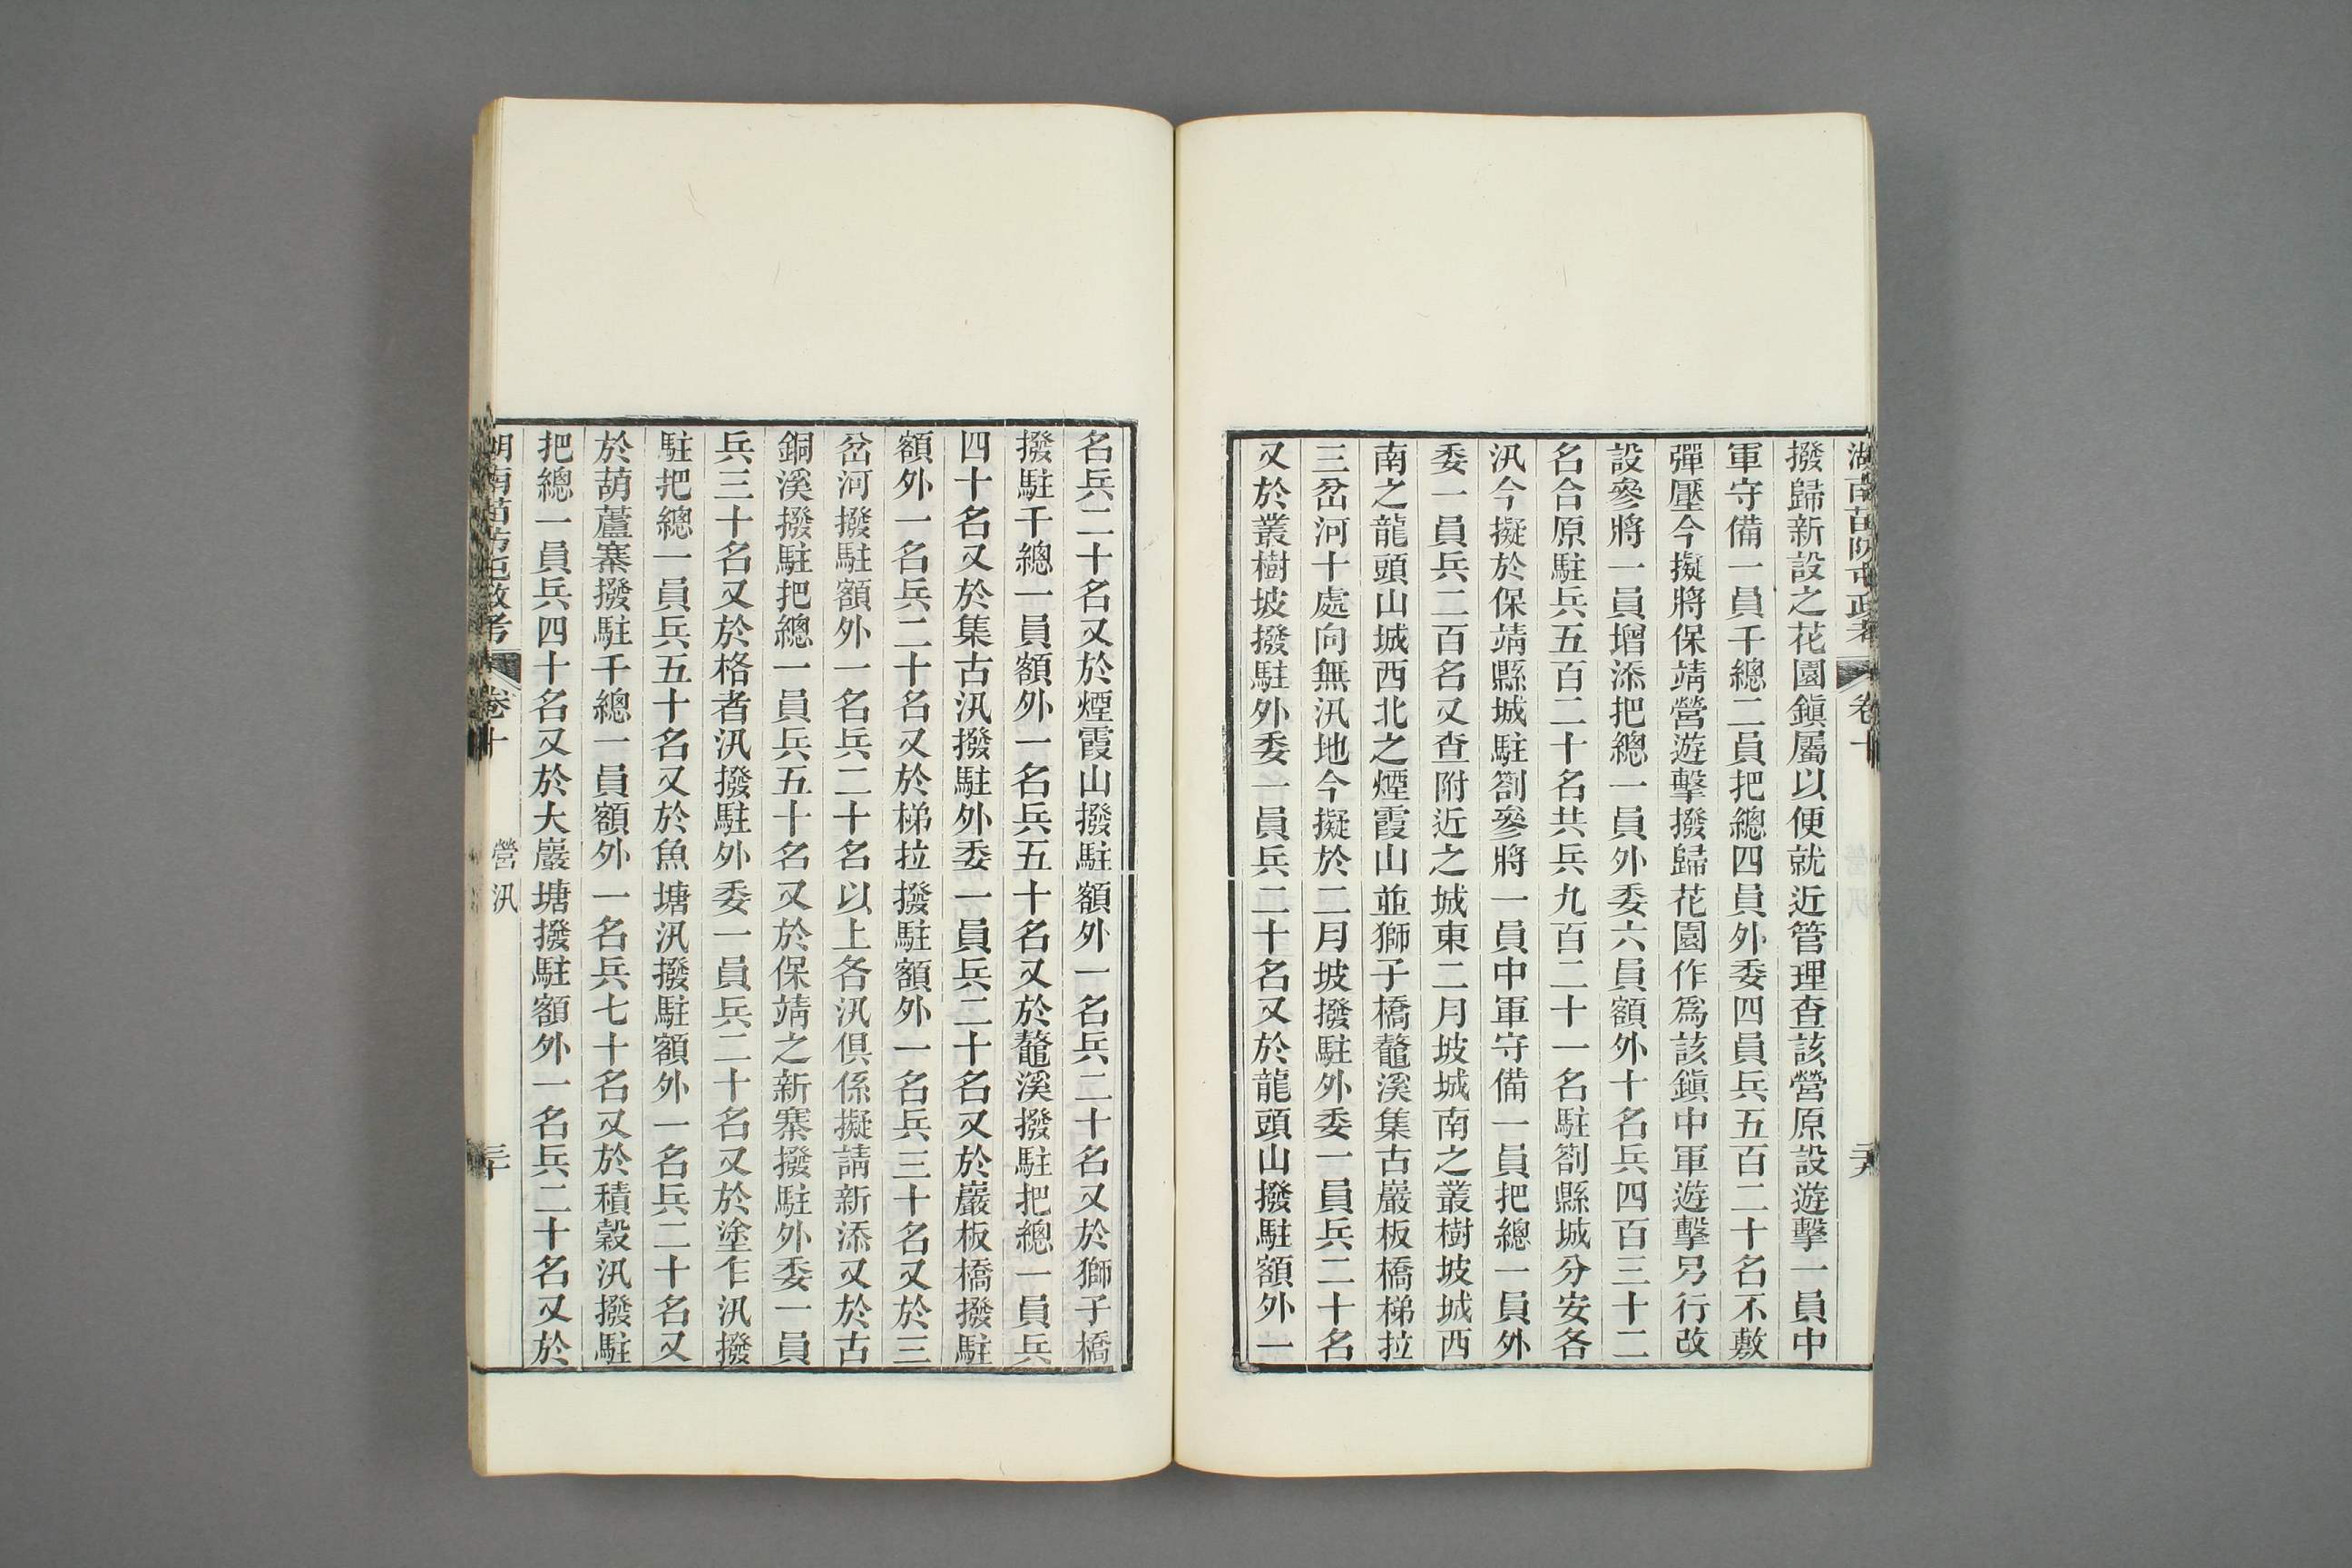 撥歸新設之花園鎭屬以便就近管理查該營原設遊擊一員中
軍守備一員千總二員把總四員外委四員兵五百二十名不敷
彈壓今擬將保靖營遊擊撥歸花園作爲該鎭中軍遊擊另行改
設參將一員增添把總一員外委六員額外十名兵四百三十二
名合原駐兵五百二十名共兵九百二十一名駐劄縣城分安各
汛今擬於保靖縣城駐劄參將一員中軍守備一員把總一員外
委一員兵二百名又查附近之城東二月坡城南之叢樹坡城西
南之龍頭山城西北之煙霞山並獅子橋鼇溪集古巖板橋梯拉
三岔河十處向無汛地今擬於二月坡撥駐外委一員兵二十名
又於叢樹坡撥駐外委一員兵二十名又於龍頭山撥駐額外一
名兵二十名又於煙霞山撥駐額外一名兵二十名又於獅子橋
撥駐千總一員額外一名兵五十名又於鼇溪撥駐把總一員兵
四十名又於集古汛撥駐外委一員兵二十名又於巖板橋撥駐
額外一名兵二十名又於梯拉撥駐額外一名兵三十名又於三
岔河撥駐額外一名兵二十名以上各汛俱係擬請新添又於古
銅溪撥駐把總一員兵五十名又於保靖之新寨撥駐外委一員
兵三十名又於格者汛撥駐外委一員兵二十名又於塗乍汛撥
駐把總一員兵五十名又於魚塘汛撥駐額外一名兵二十名又
於葫蘆寨撥駐千總一員額外一名兵七十名又於積穀汛撥駐
把總一員兵四十名又於大巖塘撥駐額外一名兵二十名又於
卷十 營汛 三十